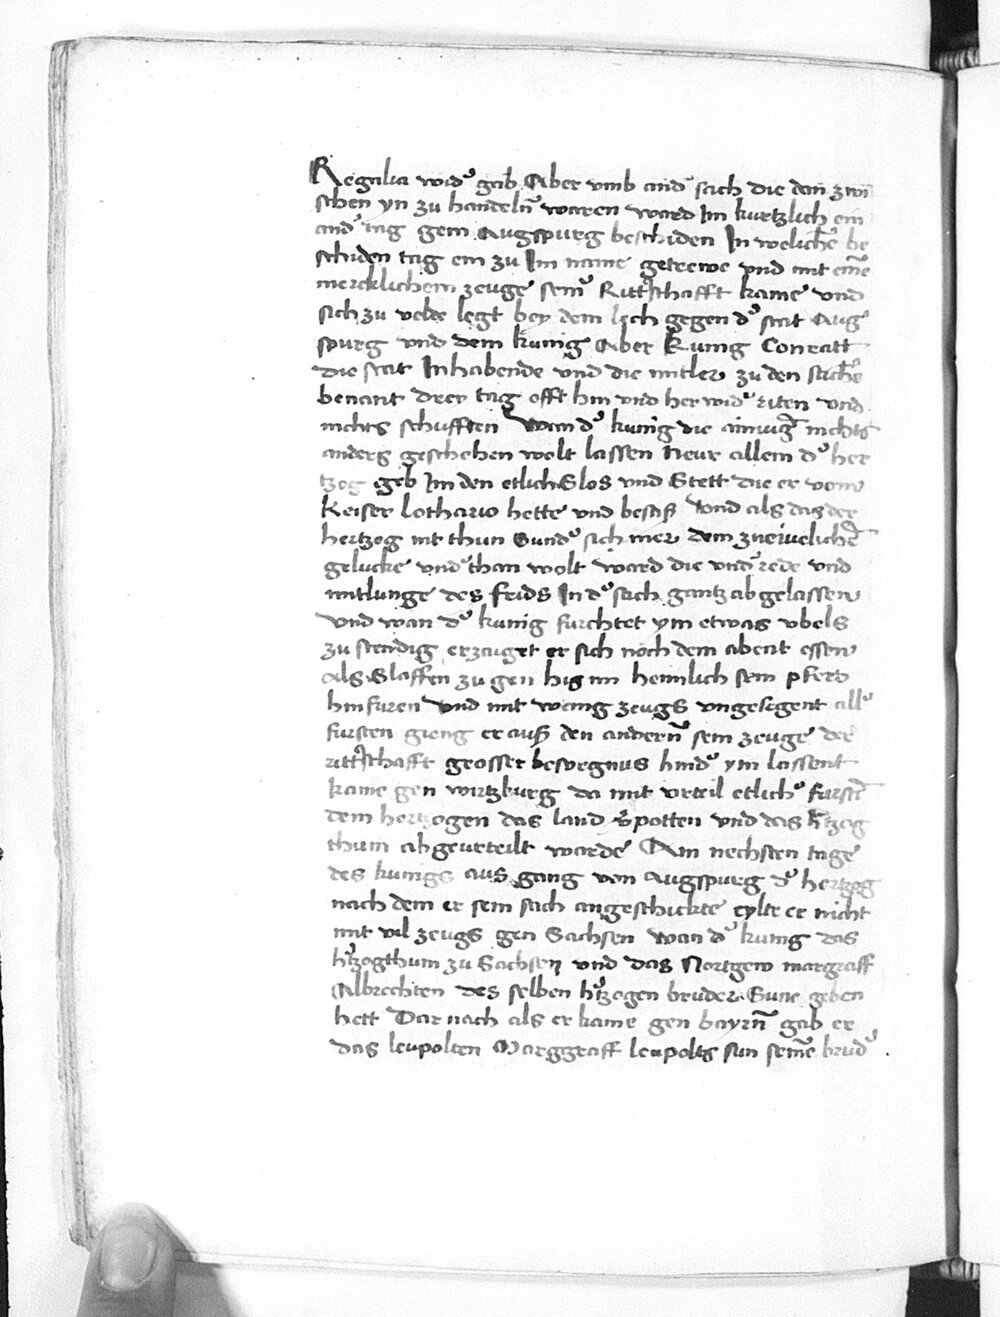 Regalia wid' gab Aber vmb and' sach die dan zwi
schen yn zu handeln̄ waren ward Im kurtzlich ein
and' tag gein Augspurg beschiden In weliche' be
schiden tag ein zu Im name getrewe vnd mit eine
mercklichem zeuge sein' Ritt'schafft kame vnd
sich zu velde legt bey dem lech gegen d' stat Aug'
spurg vnd dem kunig Aber kunig Conratt
die stat Inhabende vnd die mitler zu den sache'
benant drey tag offt hin vnd her wid' riten vnd
nichts schufften Wan d' kunig die ainuig' nichts
anders geschehen wolt lassen Neur allein d' her
tzog geb Im den etlich Slos vnd Stett die er vom
Keiser lothario hette vnd besaß Vnd als das der
hertzog nit thun Sund' sich mer dem zweiuelichē
gelucke vnd'than wolt ward die vnd'rede vnd
mitlunge des frids In d' sach gantz abgelassen
vnd wan d' kunig furchtet ym etwas vbels
zu stendig erzauget er sich noch dem abent essen
als Slaffen zu gen his im heimlich sein pferd
hinfuren vnd mit wenig zeugs vngesegent all'
fursten gieng er auß den andern̄ sein zeuge der
ritt'schafft grosser besorgnus hind' ym lassent
kame gen wirtzburg da mit vrteil etlich' furstē
dem hertzogen das land v'potten vnd das h'tzog
thum abgeurteilt warde Am nechsten tage
des kunigs aus gang von Augspurg d' hertzog
nach dem er sein sach angeschickte eylte er nicht
mit vil zeugs gen Sachsen wan d' kunig das
h'tzogthum zu Sachsen vnd das Nortgew margraff
Albrechten des selben h'tzogen bruder Sune geben
hett Dar nach als er kame gen bayrn̄ gab er
das leupolten Marggraff leupolts sun seine brud'